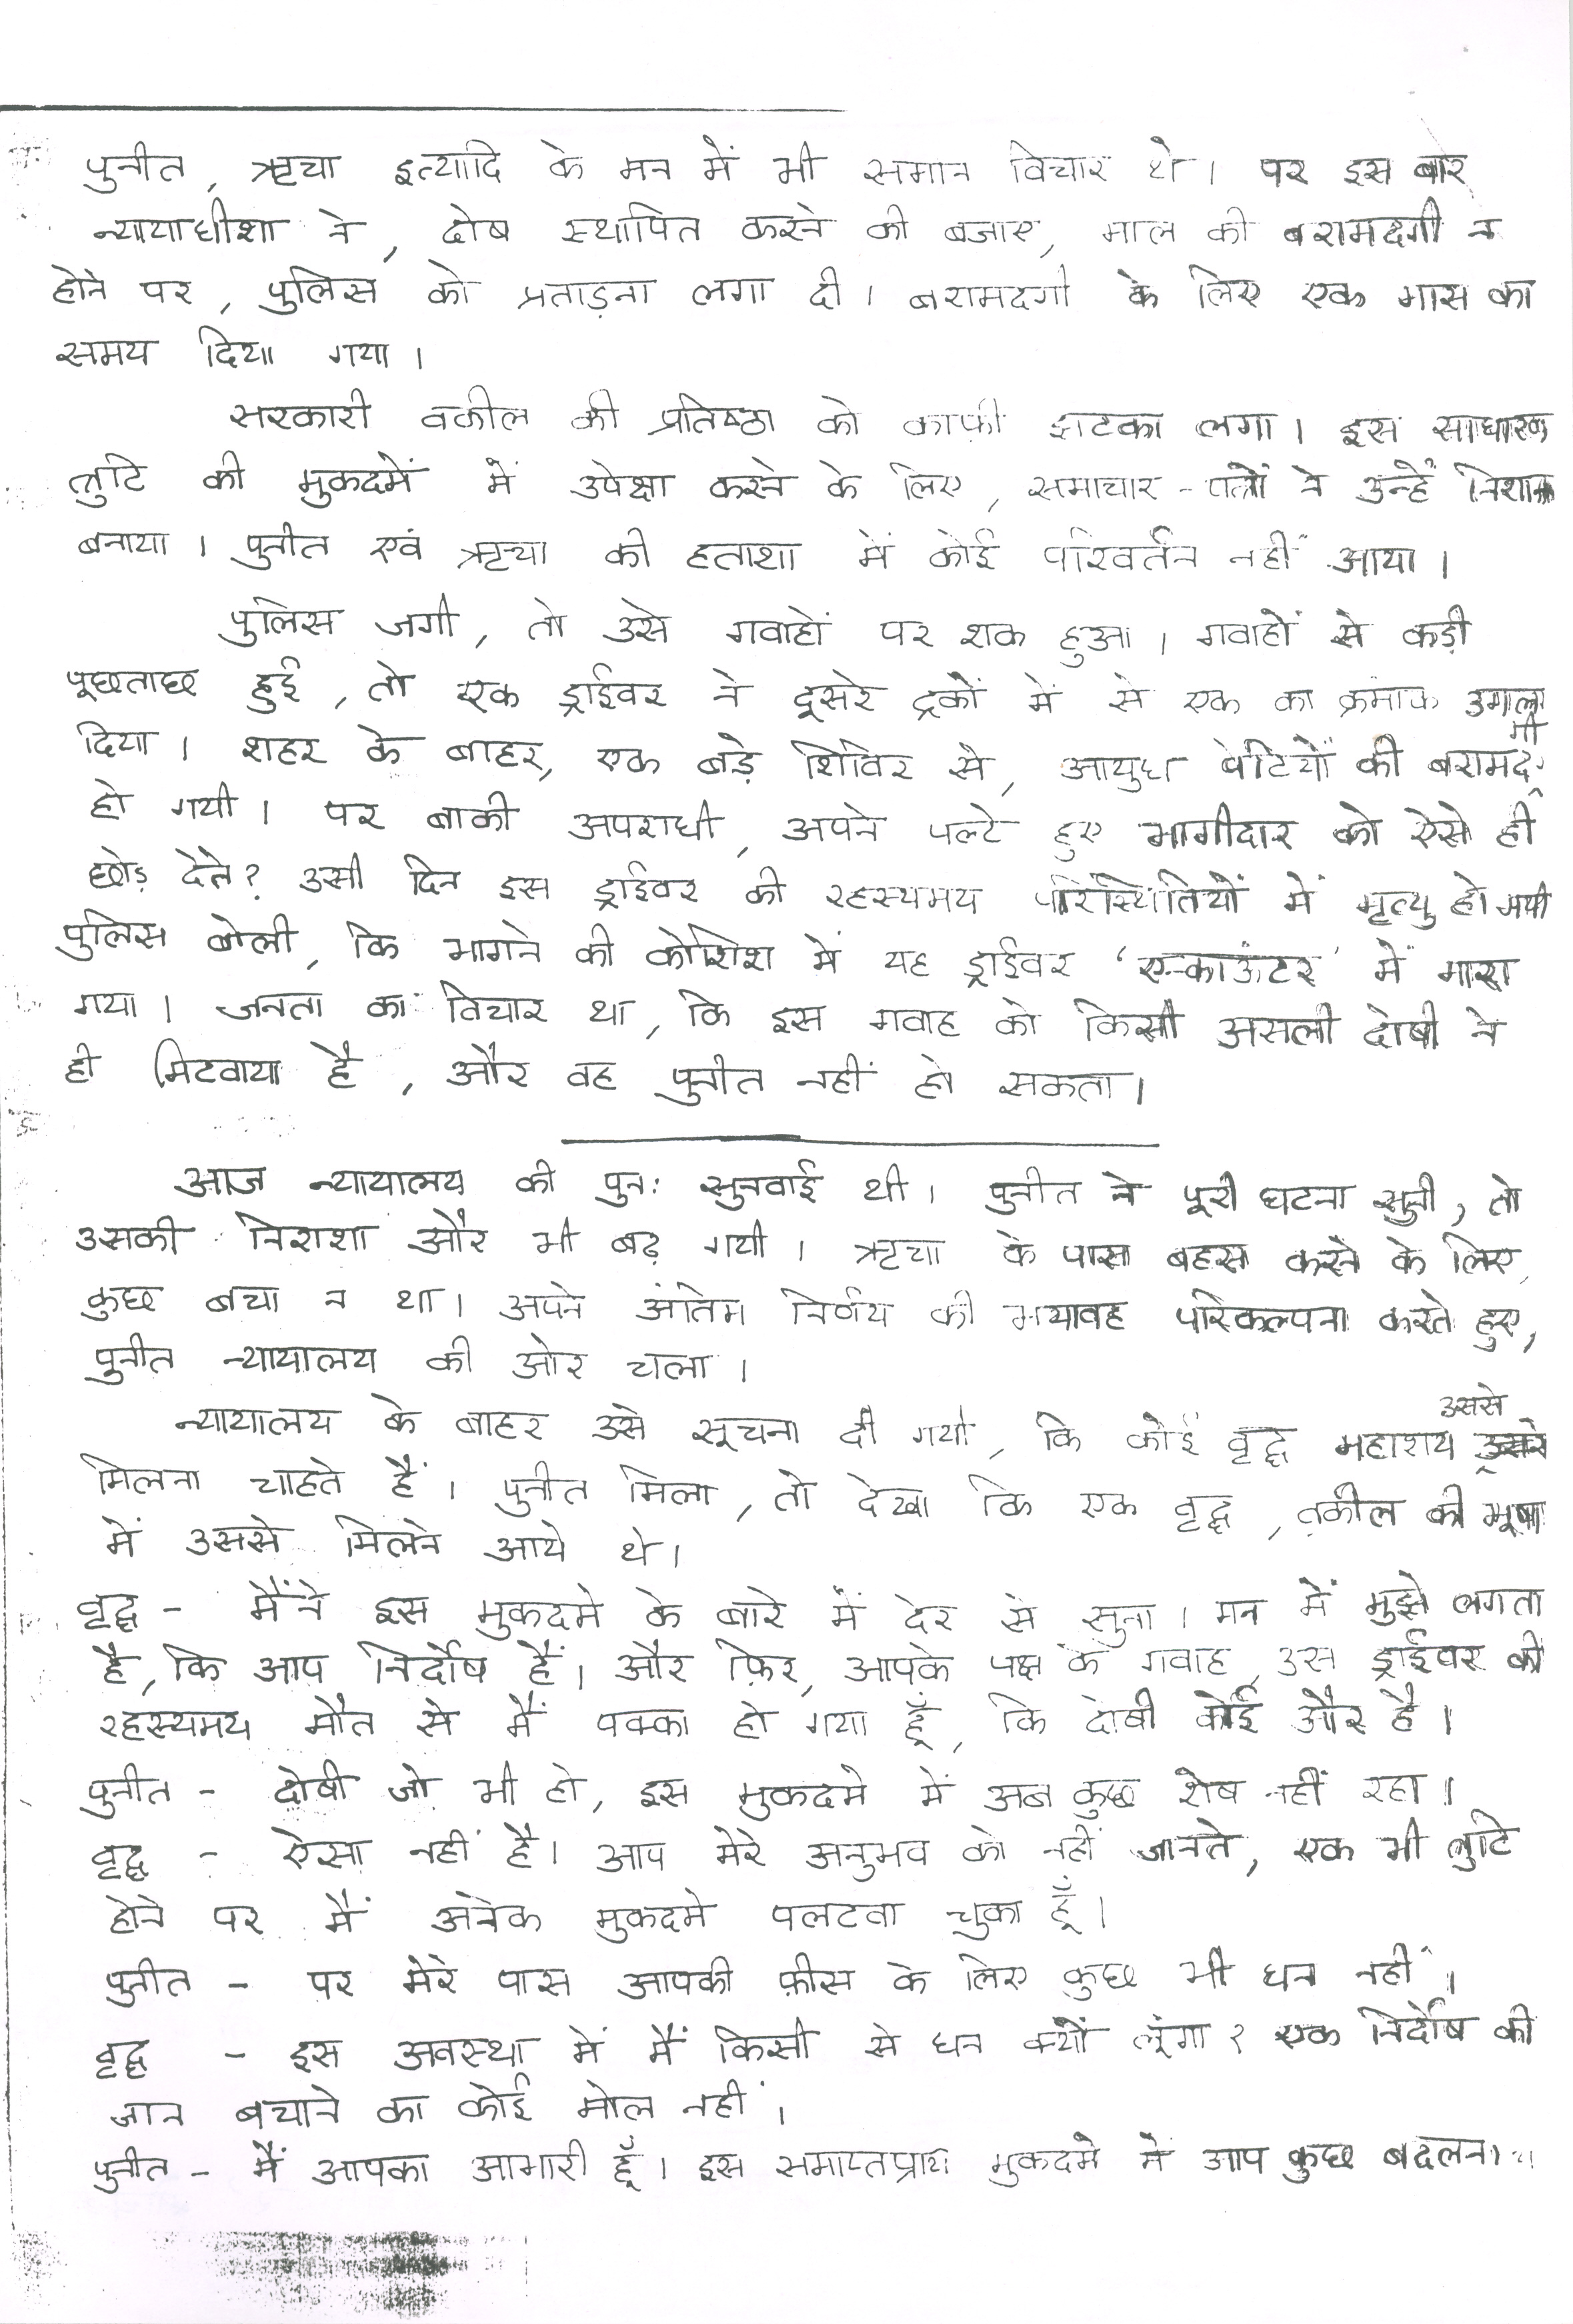 पुनीत, ऋचा इत्यादि के मन में भी समान विचार थे। पर इस बार
न्यायाधीश ने, दोष स्थापित करने की बजाए, माल की बरामदगी न
होने पर, पुलिस को प्रताड़ना लगा दी। बरामदगी के लिए एक मास का
समय दिया गया।
सरकारी वकील की प्रतिष्ठा को काफ़ी झटका लगा। इस साधारण
त्रुटि की मुकदमें में उपेक्षा करने के लिए, समाचार-पत्रों ने उन्हें निशाना
बनाया। पुनीत एवं ऋचा की हताशा में कोई परिवर्तन नहीं आया।
पुलिस जगी, तो उसे गवाहों पर शक हुआ। गवाहों से कड़ी
पूछताछ हुई, तो एक ड्राईवर ने दूसरे ट्रकों में से एक का क्रमांक उगल
दिया। शहर के बाहर, एक बड़े शिविर से, आयुध पेटियों की बरामदगी
हो गयी। पर बाकी अपराधी, अपने पल्टे हुए भागीदार को ऐसे ही
छोड़ देते? उसी दिन इस ड्राईवर की रहस्यमय परिस्थितियों में मृत्यु हो गयी
पुलिस बोली, कि भागने की कोशिश में यह ड्राईवर 'एन्काऊंटर' में मारा
गया। जनता का विचार था, कि इस गवाह को किसी असली दोषी ने
ही मिटवाया है, और वह पुनीत नहीं हो सकता।
आज न्यायालय की पुनः सुनवाई थी। पुनीत ने पूरी घटना सुनी, तो
उसकी निराशा और भी बढ़ गयी। ऋचा के पास बहस करने के लिए,
कुछ बचा न था। अपने अंतिम निर्णय की भयावह परिकल्पना करते हुए,
पुनीत न्यायालय की ओर चला।
न्यायालय के बाहर उसे सूचना दी गयी, कि कोई वृद्ध महाशय उससे
मिलना चाहते हैं। पुनीत मिला, तो देखा कि एक वृद्ध, वकील की भूषा
में उससे मिलने आये थे।
वृद्ध - मैंने इस मुकदमे के बारे में देर से सुना। मन में मुझे लगता
है, कि आप निर्दोष हैं। और फ़िर, आपके पक्ष के गवाह, उस ड्राईवर की
रहस्यमय मौत से मैं पक्का हो गया हूँ, कि दोषी कोई और है।
पुनीत - दोषी जो भी हो, इस मुकदमे में अब कुछ शेष नहीं रहा।
वृद्ध - ऐसा नहीं है। आप मेरे अनुभव को नहीं जानते, एक भी त्रुटि
होने पर मैं अनेक मुकदमे पलटवा चुका हूँ।
पुनीत - पर मेरे पास आपकी फ़ीस के लिए कुछ भी धन नहीं।
वृद्ध - इस अवस्था में मैं किसी से धन क्यों लूंगा? एक निर्दोष की
जान बचाने का कोई मोल नहीं।
पुनीत - मैं आपका आभारी हूँ। इस समाप्तप्राय मुकदमे में आप कुछ बदलना